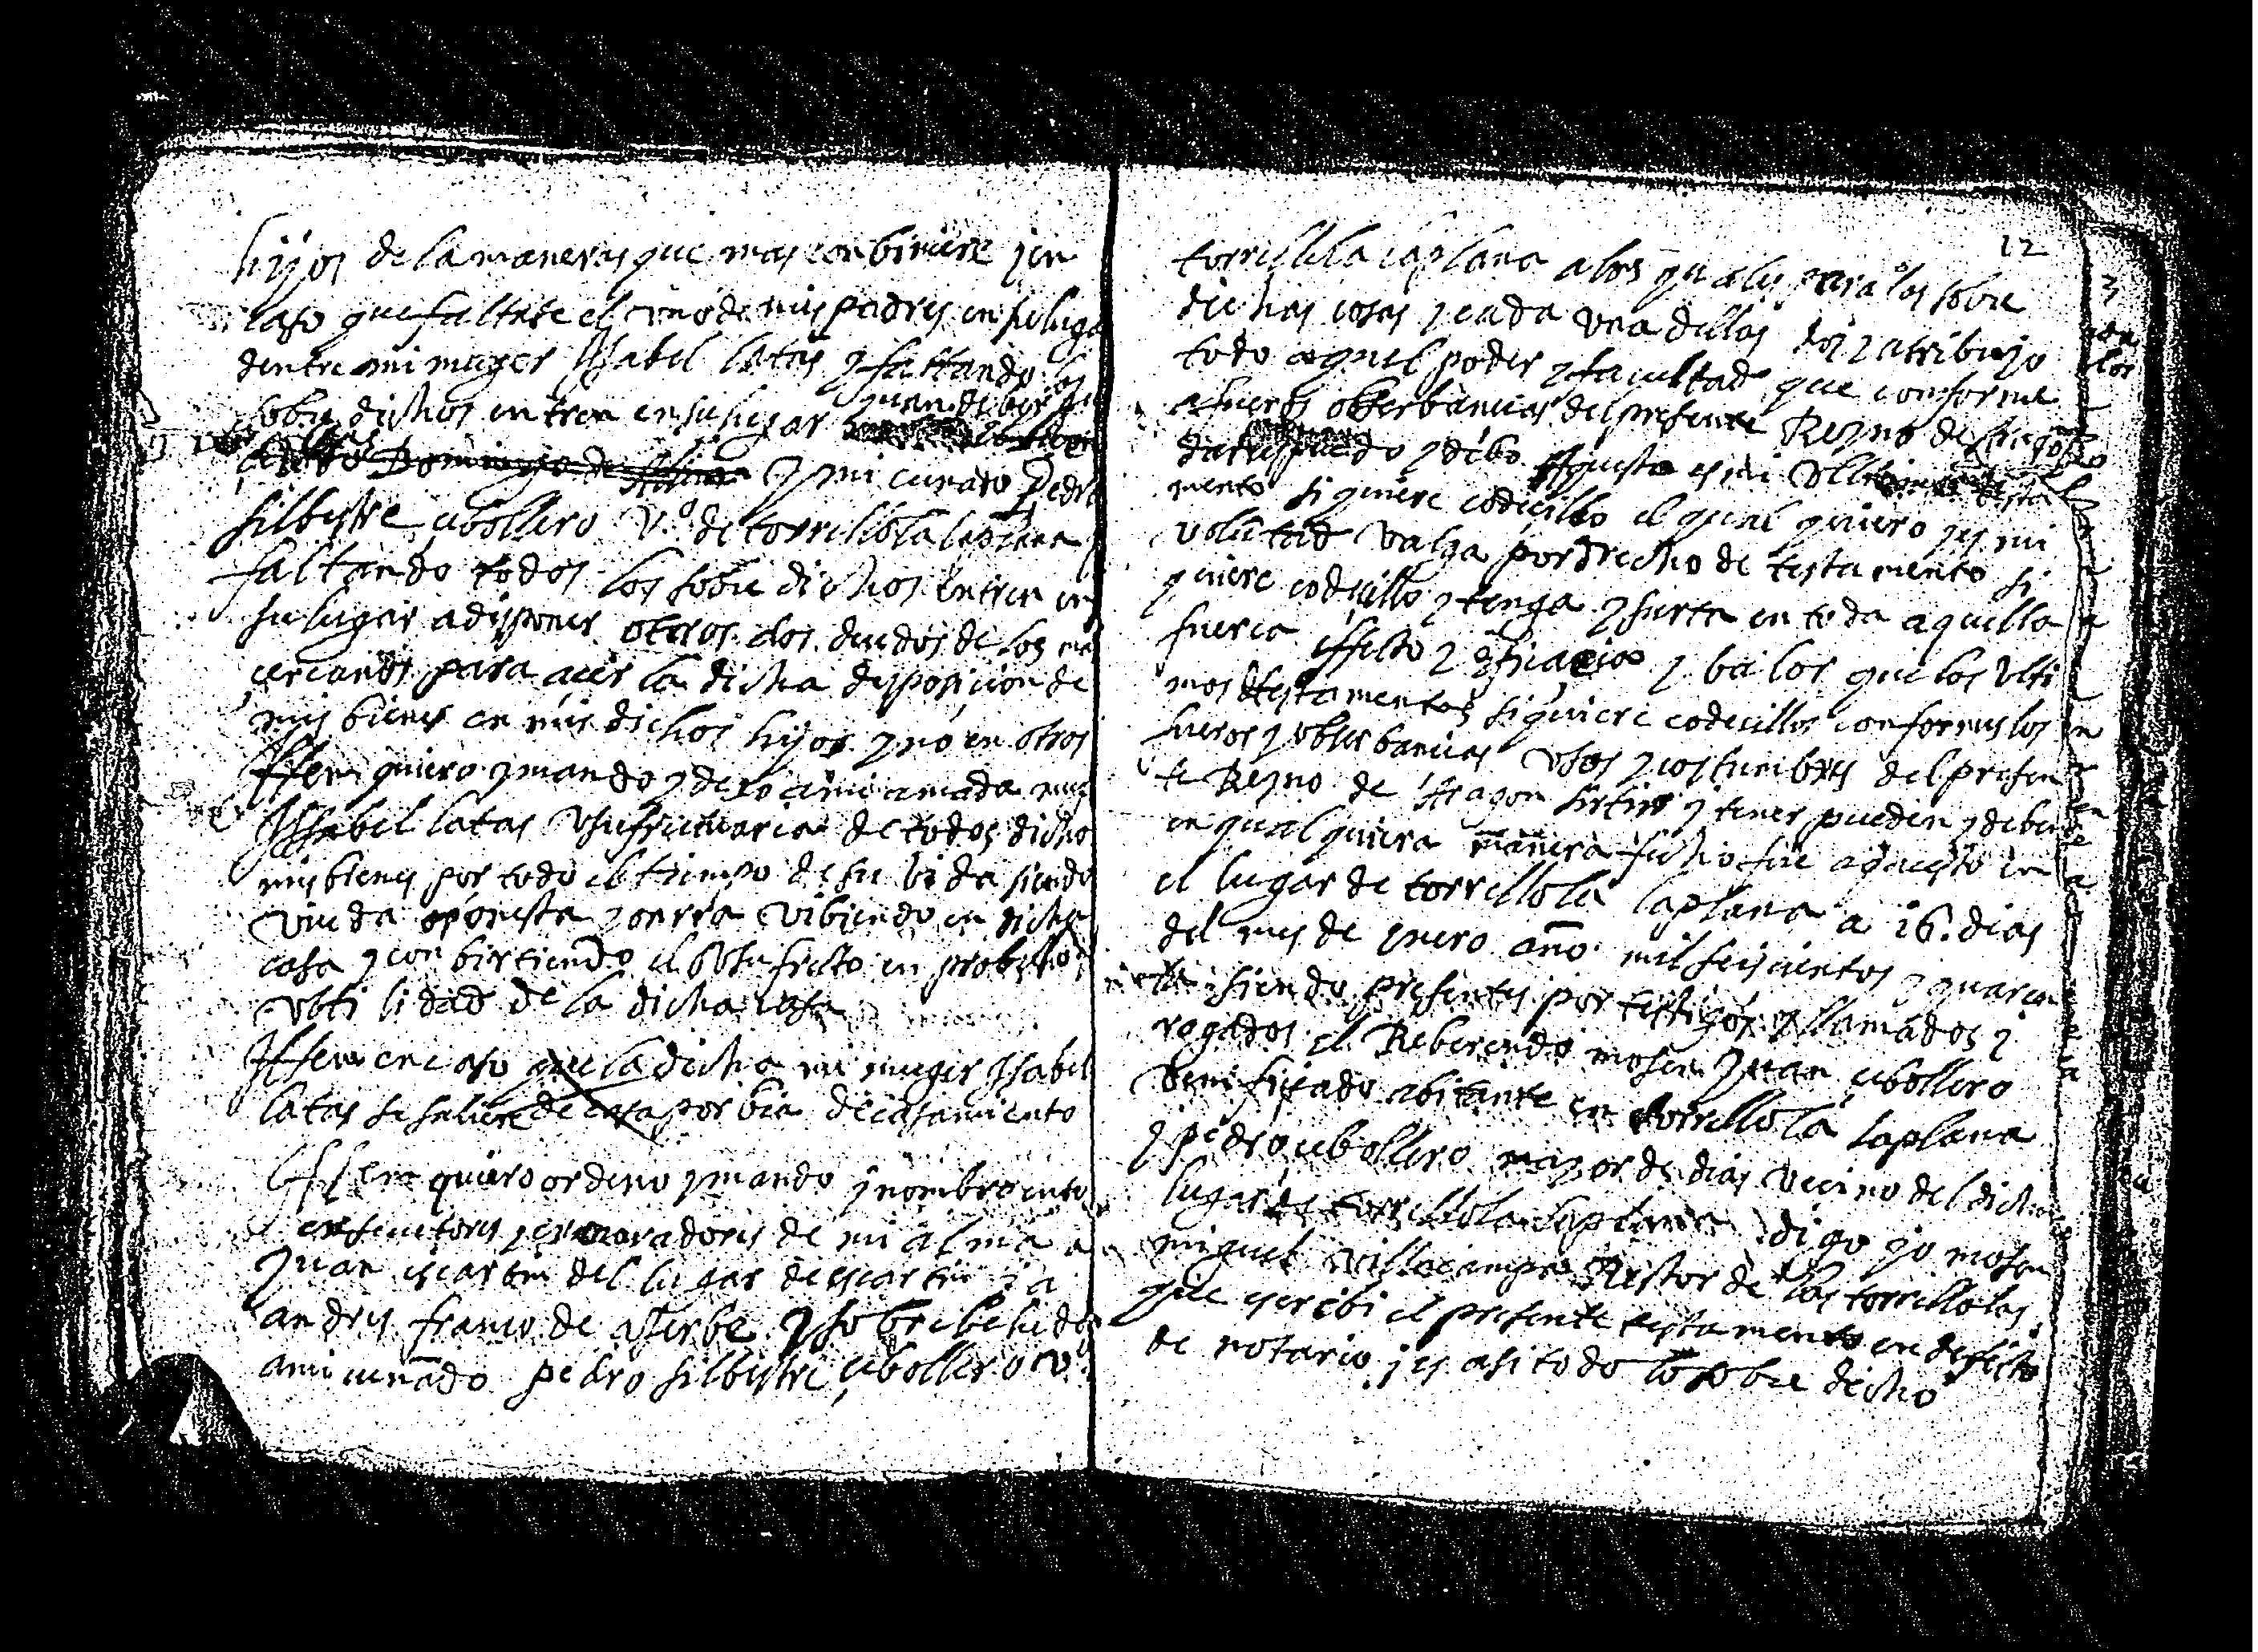 hijos de la manera que mas conbiniere y en
caso que faltase el uno de mis padres en su luga
dentre mi muger Ysabel latas y faltando los
sobre dichos entren en su lugar
Domingo de y mi cuñado Pedro
silbestre cebollero v.º de torrillola laplana y
faltando todos los sobre dichos entren en
su lugar a disponer otros dos deudos de los mas
cercanos para acer la dicha disposicion de
mis bienes en mis dichos hijos y no en otros
Ittem quiero y mando y dexo a mi amada mug
Ysabel latas Vsufrutuaria de todos dicho
mis bienes por todo el tiempo de su bida siendo
viuda onesta y onrra vibiendo en dicha
casa y conbirtiendo el Vsufruto en probecho
Vtilidad de la dicha casa
Ittem en caso que la dicha mi muger Isabel
latas se saliere de casa por bia de casamiento
Ittem quiero ordeno y mando y nombro en
exsecutores y exoneradores de mi alma a
Juan escartin del lugar de escartin y a
andres franco de ayerbe y sobre
a mi cuñado pedro silbestre cebollero v.º
12
torrillola laplana a los quales para las sobre
dichas cosas y cada vna dellas doy y atribuyo
todo aquel poder y facultad que conforme
a fueros obserbancias del presente Reyno de Aragon
puedo y debo Aqueste es mi Vltimo testa
mento siquiere codicillo el qual quiero y es mi
voluntad valga por drecho de testamento si
quiere codicillo y tenga y surta en toda aquella
fuerça effecto y eficacia y balor que los Vlti
mos testamentos siquiere codicillos conforme los
fueros y obserbancias Vsos y costumbres del presen
te Reyno de Aragon surtir y tener pueden y deben
en qualquiera manera fecho fue aquesto en
el lugar de torrillola laplana a 16. dias
del mes de enero año mil seiscientos y quaren
ta siendo presentes por testigos y llamados y
rogados el Reberendo mosen Juan cebollero
benifiçado abitante en torrillola laplana
y pedro cebollero mayor de dias vecino del dicho
lugar de torrillola laplana digo yo mosen
miguel villacampa Rector de las torrillolas
que escribi el presente testamento en defecto
de notario y es asi todo lo sobre dicho